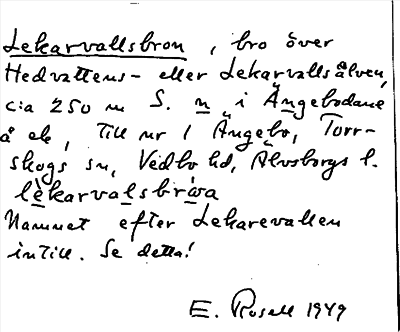 Lekarvallsbron, bro över
Hedvattens- eller Lekarvallsälven,
c:a 250 m S. n i Ängebodane
å ek, till nr 1 Ängebo, Torr-
skogs sn, Vedbo hd, Älvsborgs l.
lèkarvalsbròa
Namnet efter Lekarevallen
intill. Se detta!
E. Rosell 1949